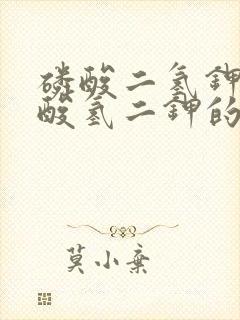 磷酸二氢钾
酸氢二钾的
莫小棄